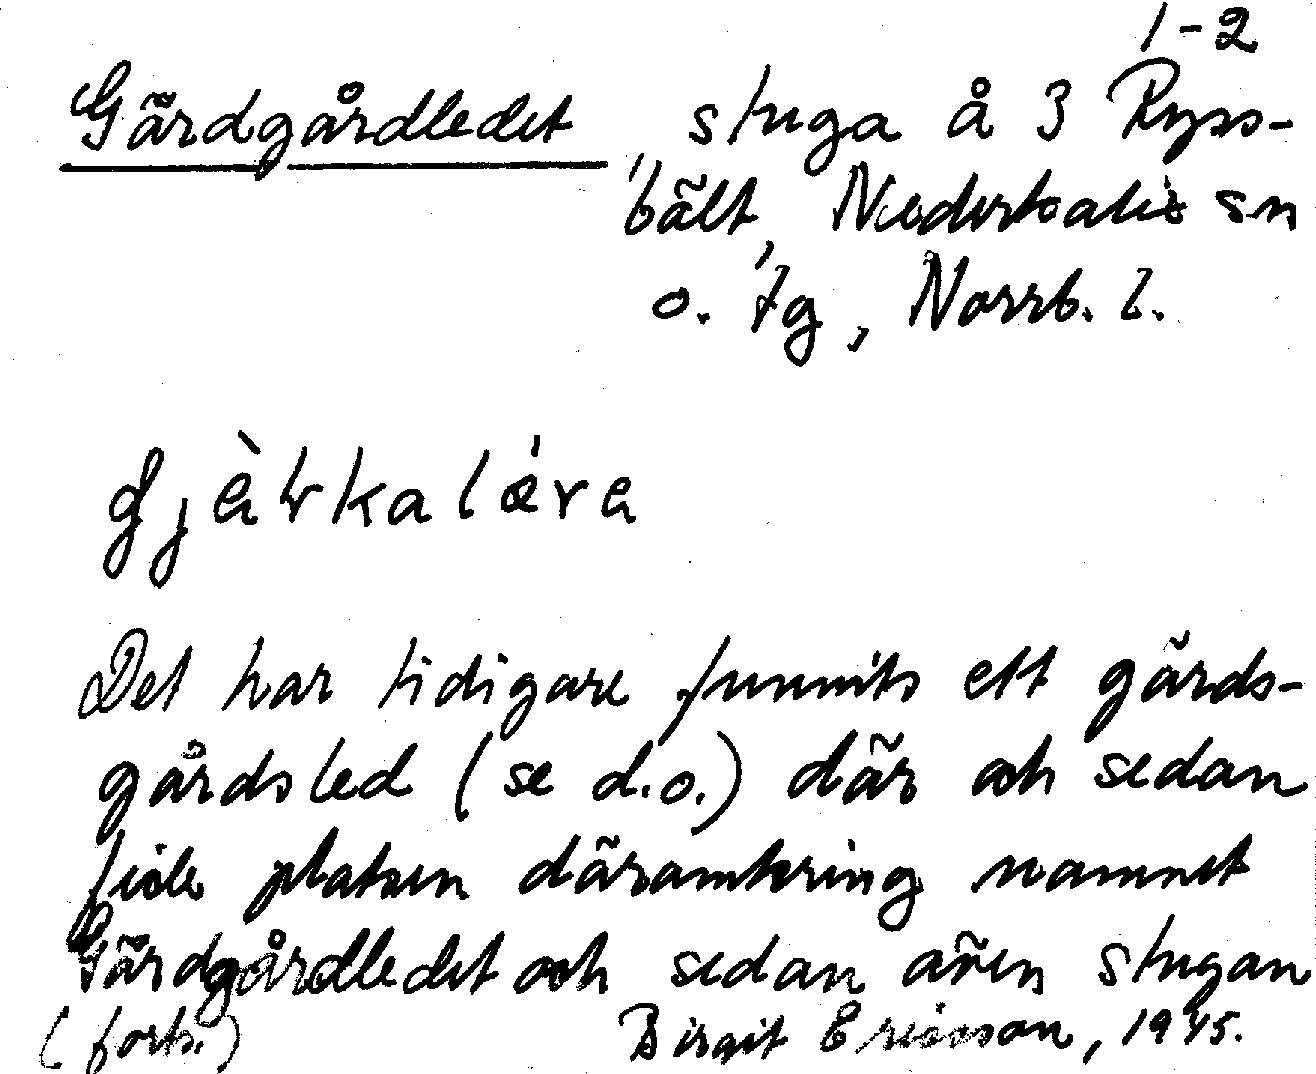 1-2
Gärdgårdledet, stuga å 3 Ryss-
bält, Nederkalix sn
o. tg, Norrb. l.
gjèkalǽra
Det har tidigare funnits ett gärds-
gårdsled (se d.o.) där och sedan
fick platsen däromkring namnet
Gärdgårdledet och sedan även stugan
(forts.) Birgit Ericsson, 1945.